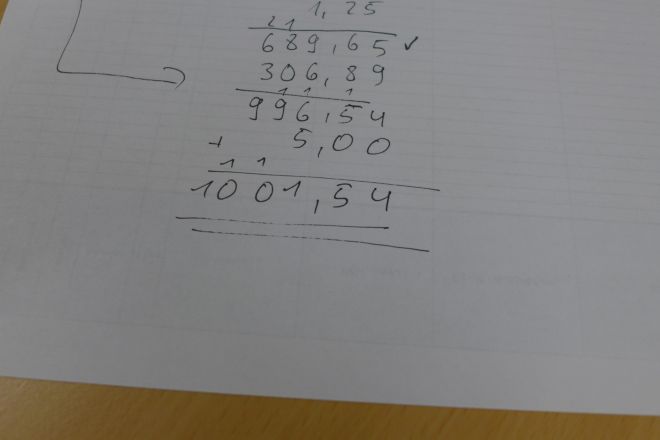 1,25
21
689,65 ✓
306,89
1 1 1
996,54
+ 5,00
1 1
1001,54